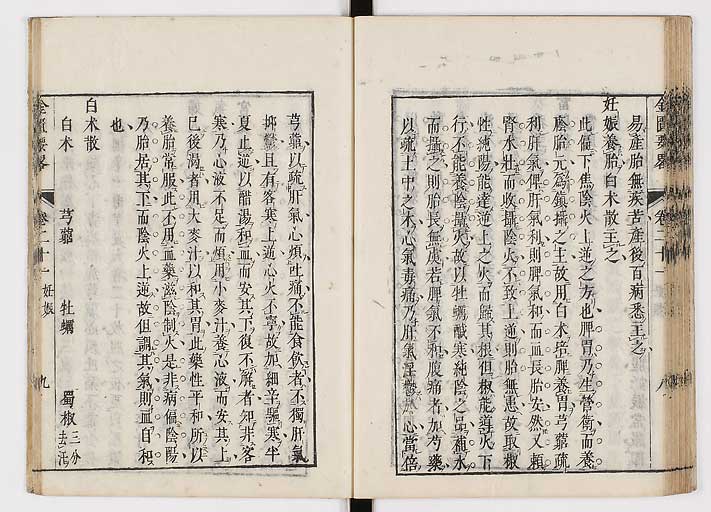 易產胎無疾苦產後百病悉主之
妊娠養胎白朮散主之
此偏下焦陰火上逆之方也脾胃乃生營衞而養
陰胎元爲鎮攝之主故用白朮培脾養胃芎藭疏
利肝氣俾肝氣利則脾氣和而血長胎安然又賴
腎水壯而收攝陰火不致上逆則胎無患故取椒
性純陽能達逆上之火而歸其根但椒能導火下
行不能養陰攝火故以牡蠣醎寒純陰之品補水
而攝之則胎長無虞若脾氣不和腹痛者加芍藥
以疏土中之木心氣毒痛乃肝氣逆鬱於心當倍
芎藭以疏肝氣心煩吐痛不能食飲者不獨肝氣
抑鬱且有客寒上逆心火不寧故加細辛驅寒半
夏止逆以醋漿和血而安其下復不解者知非客
寒乃心液不足而煩用小麥汁養心液而安其上
已後渴者用大麥汁以和其胃此藥性平和所以
養胎常服此不用血藥滋陰制火是非病偏陰陽
乃胎居其下而陰火上逆故但調其氣則血自和
也
白朮散
白朮 芎藭 牡蠣 蜀椒三分去汗
金匱要畧 卷二十一 妊娠 九